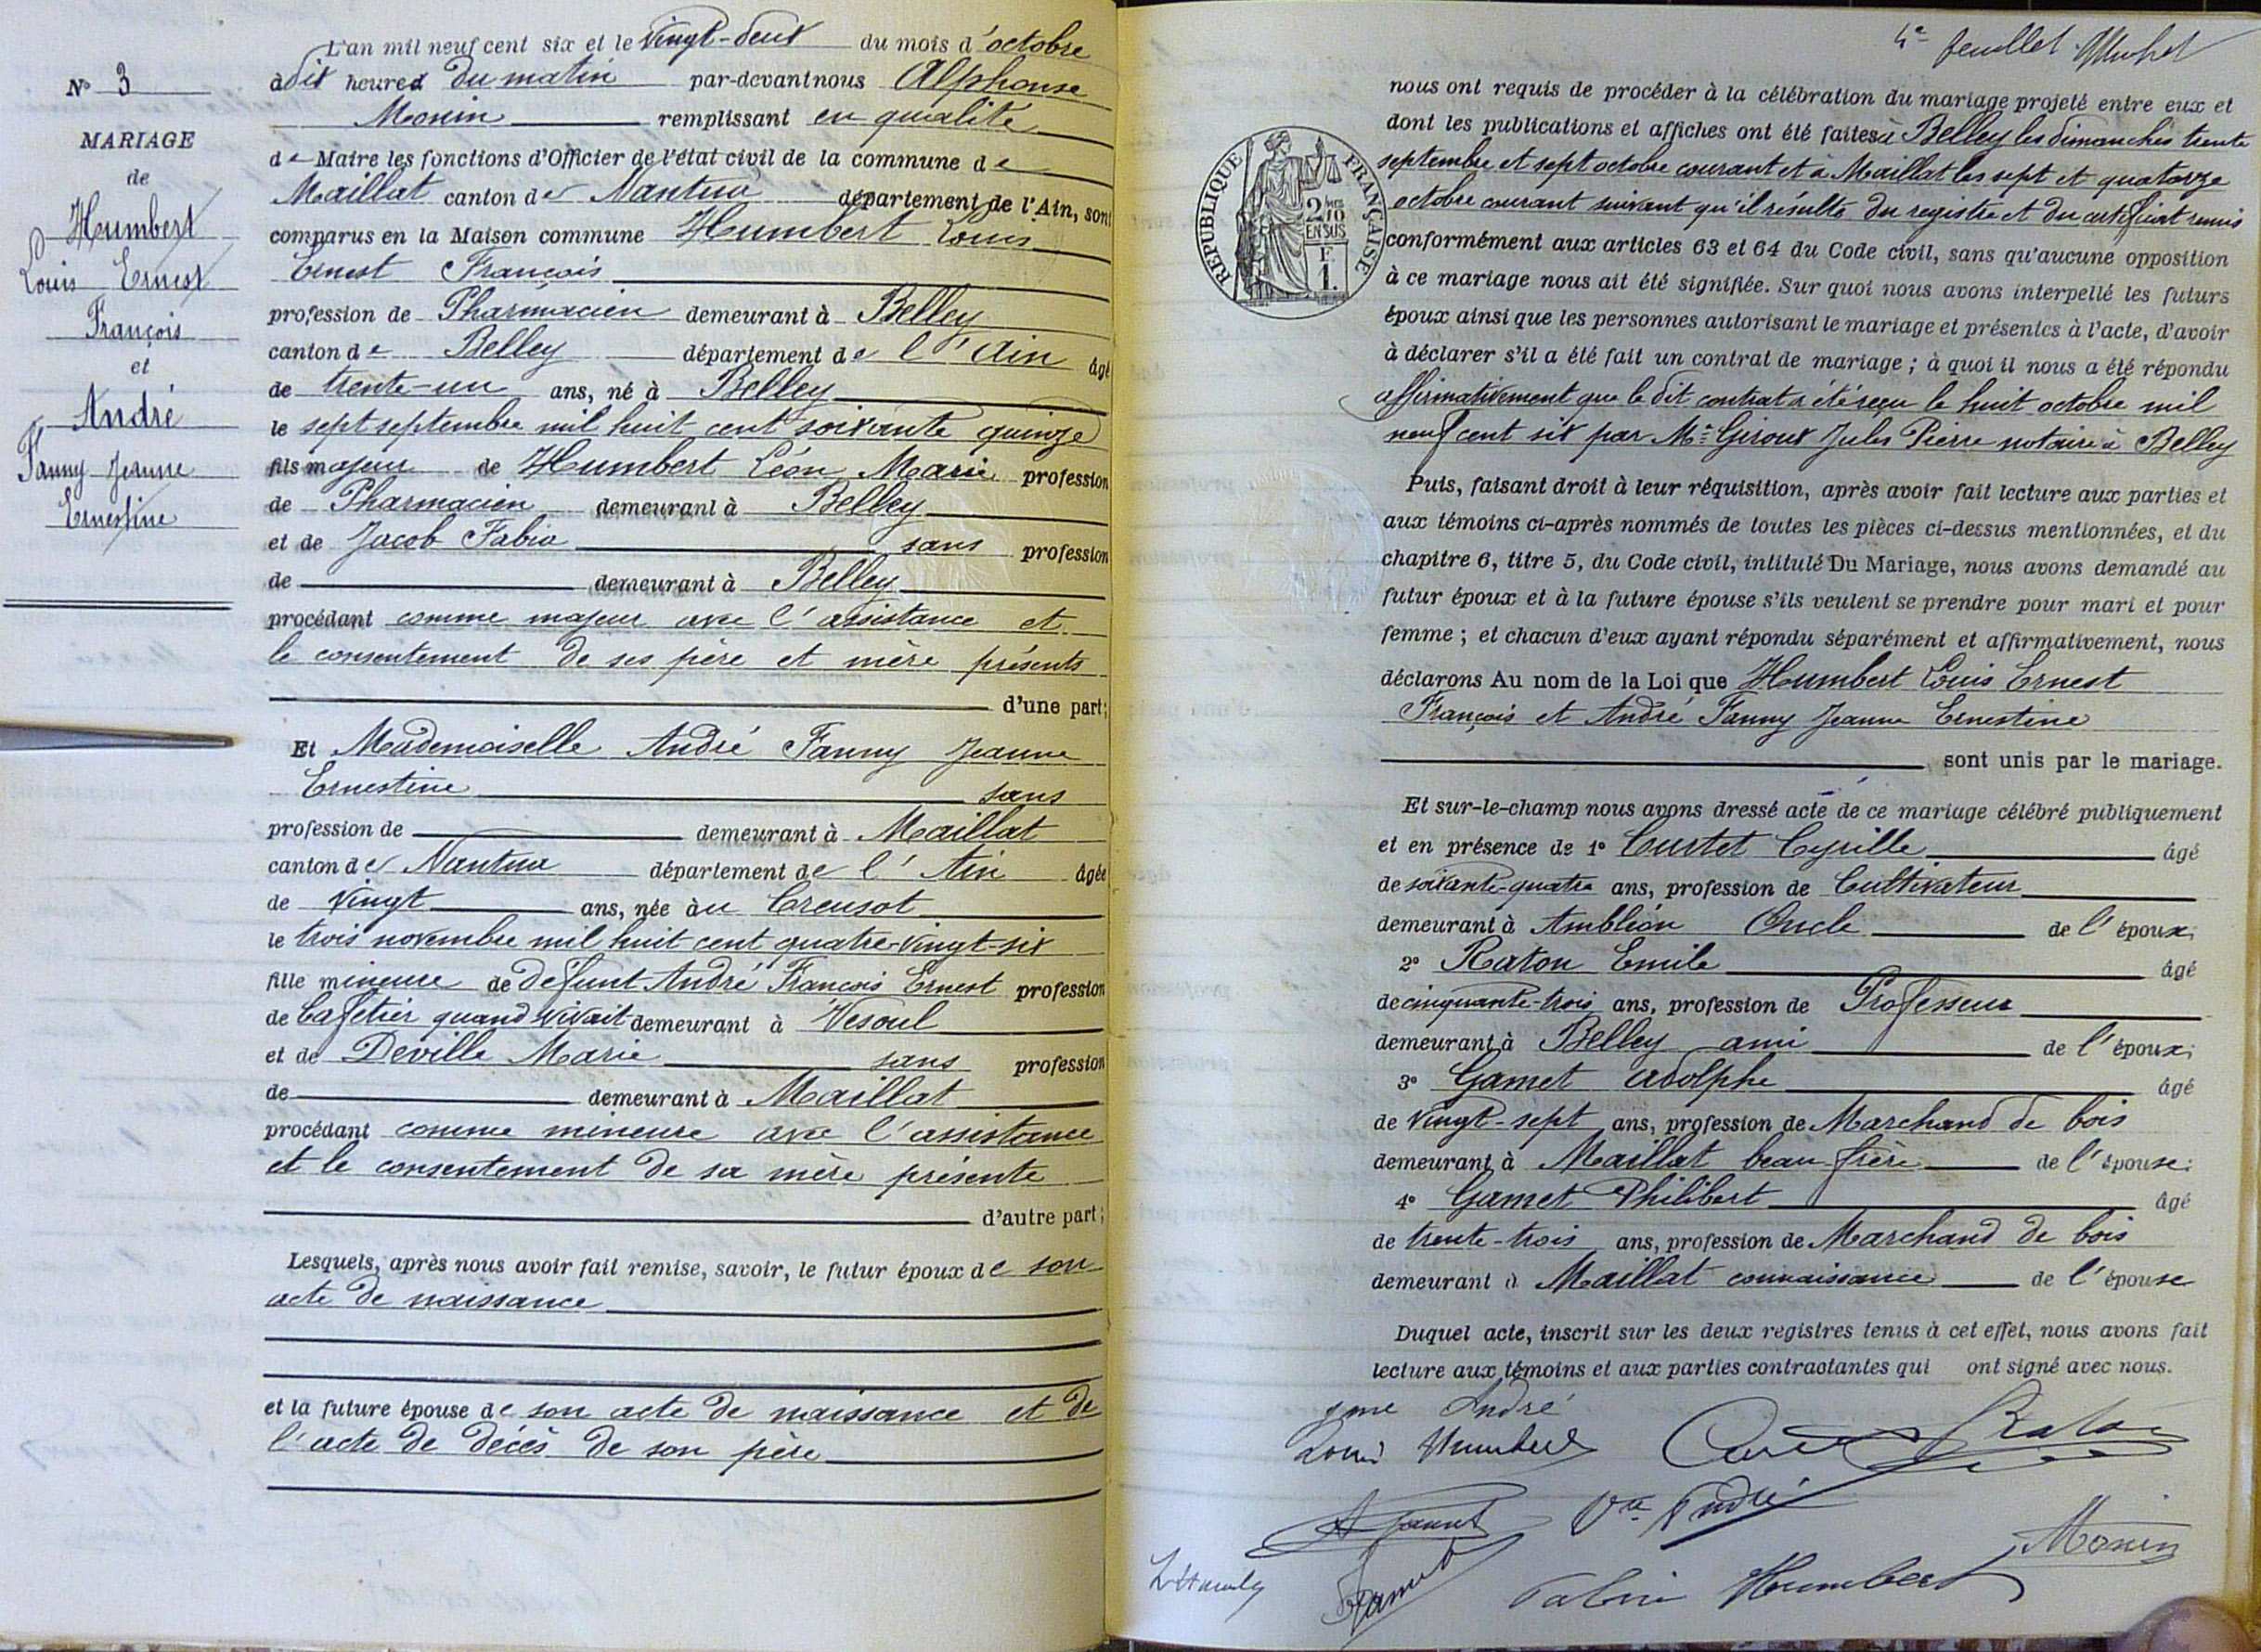 N° 3
MARIAGE
de
Humbert
Louis Ernest
François
et
André
Fanny Jeanne
Ernestine
L'an mil neuf cent six et le vingt-deux du mois d'octobre
à dix heures du matin par-devant nous Alphonse
Monin remplissant en qualité
de Maire les fonctions d'Officier de l'état civil de la commune de
Maillat canton de Nantua département de l'Ain, sont
comparus en la Maison commune Humbert Louis
Ernest François
profession de Pharmacien demeurant à Belley
canton de Belley département de l'Ain âgé
de trente-un ans, né à Belley
le sept septembre mil huit cent soixante quinze
fils majeur de Humbert Léon Marie profession
de Pharmacien demeurant à Belley
et de Jacob Fabia sans profession
de demeurant à Belley
procédant comme majeur avec l'assistance et
le consentement de ses père et mère présents
d'une part;
Et Mademoiselle André Fanny Jeanne
Ernestine sans
profession de demeurant à Maillat
canton de Nantua département de l'Ain âgée
de vingt ans, née au Creusot
le trois novembre mil huit cent quatre-vingt-six
fille mineure de défunt André François Ernest profession
de Cafetier quand vivait demeurant à Vesoul
et de Deville Marie sans profession
de demeurant à Maillat
procédant comme mineure avec l'assistance
et le consentement de sa mère présente
d'autre part;
Lesquels, après nous avoir fait remise, savoir, le futur époux de son
acte de naissance
et la future épouse de son acte de naissance et de
l'acte de décès de son père
4e feuillet
nous ont requis de procéder à la célébration du mariage projeté entre eux et
dont les publications et affiches ont été faites à Belley les dimanches trente
septembre et sept octobre courant et à Maillat les sept et quatorze
octobre courant suivant qu'il résulte du registre et du certificat remis
conformément aux articles 63 et 64 du Code civil, sans qu'aucune opposition
à ce mariage nous ait été signifiée. Sur quoi nous avons interpellé les futurs
époux ainsi que les personnes autorisant le mariage et présentes à l'acte, d'avoir
à déclarer s'il a été fait un contrat de mariage ; à quoi il nous a été répondu
affirmativement que le dit contrat a été reçu le huit octobre mil
neuf cent six par Me Giroux Jules Pierre notaire à Belley
RÉPUBLIQUE FRANÇAISE
2/10
EN SUS
F.
1.
Puis, faisant droit à leur réquisition, après avoir fait lecture aux parties et
aux témoins ci-après nommés de toutes les pièces ci-dessus mentionnées, et du
chapitre 6, titre 5, du Code civil, intitulé Du Mariage, nous avons demandé au
futur époux et à la future épouse s'ils veulent se prendre pour mari et pour
femme ; et chacun d'eux ayant répondu séparément et affirmativement, nous
déclarons Au nom de la Loi que Humbert Louis Ernest
François et André Fanny Jeanne Ernestine
sont unis par le mariage.
Et sur-le-champ nous avons dressé acte de ce mariage célébré publiquement
et en présence de 1° Curtet Cyrille âgé
de soixante-quatre ans, profession de Cultivateur
demeurant à Ambléon Oncle de l'époux;
2° Raton Emile âgé
de cinquante-trois ans, profession de Professeur
demeurant à Belley ami de l'époux;
3° Gamet Adolphe âgé
de vingt-sept ans, profession de Marchand de bois
demeurant à Maillat beau-frère de l'épouse;
4° Gamet Philibert âgé
de trente-trois ans, profession de Marchand de bois
demeurant à Maillat connaissance de l'épouse
Duquel acte, inscrit sur les deux registres tenus à cet effet, nous avons fait
lecture aux témoins et aux parties contractantes qui ont signé avec nous.
André
Louis Humbert Raton
A Gamet Vve André
Monin
Gamet Humbert